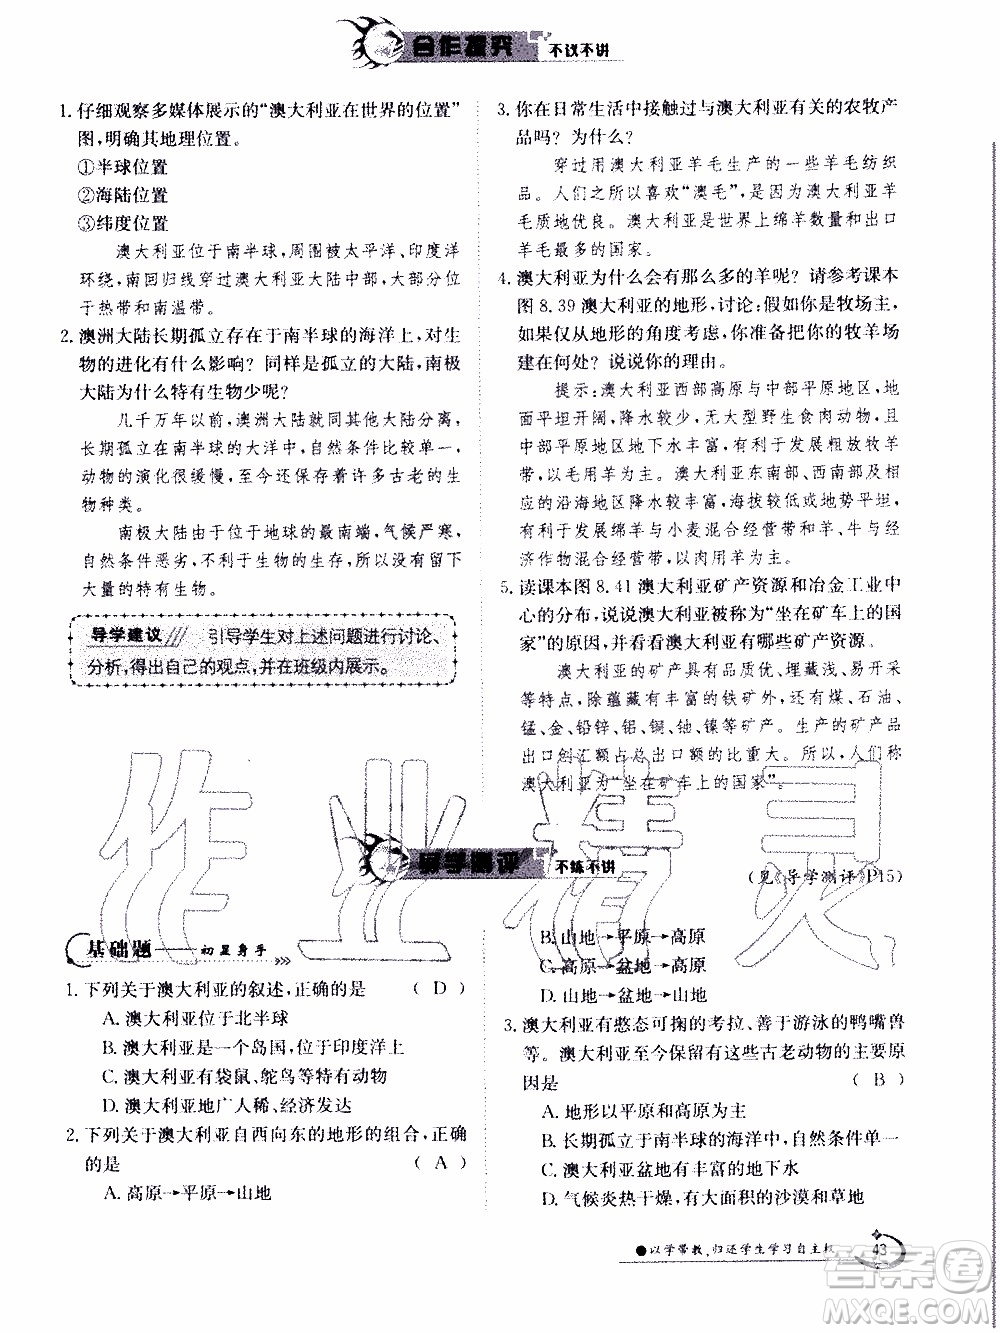 合作探究 不议不讲
1. 仔细观察多媒体展示的“澳大利亚在世界的位置”
图,明确其地理位置。
①半球位置
②海陆位置
③纬度位置
澳大利亚位于南半球,周围被太平洋、印度洋
环绕,南回归线穿过澳大利亚大陆中部,大部分位
于热带和南温带。
2. 澳洲大陆长期孤立存在于南半球的海洋上,对生
物的进化有什么影响? 同样是孤立的大陆,南极
大陆为什么特有生物少呢?
几千万年以前,澳洲大陆与其他大陆分离,
长期孤立于南半球的大洋中,自然条件比较单一,
动物的演化很缓慢,至今保存着许多古老的生
物种类。
南极大陆由于位于地球的最南端,气候严寒,
自然条件恶劣,不利于生物的生存,所以没有留下
大量的特有生物。
导学建议 引导学生对上述问题进行讨论、
分析,得出自己的观点,并在班级内展示。
3. 你在日常生活中接触过与澳大利亚有关的农牧产
品吗? 为什么?
穿过用澳大利亚羊毛生产的一些羊毛纺织
品。人们之所以喜欢“澳毛”,是因为澳大利亚羊
毛质地优良。澳大利亚是世界上绵羊数量和出口
羊毛最多的国家。
4. 澳大利亚为什么会有那么多的羊呢? 请参考课本
图 8.39 澳大利亚的地形,讨论:假如你是牧场主,
如果仅从地形的角度考虑,你准备把你的牧羊场
建在何处? 说说你的理由。
提示:澳大利亚西部高原与中部平原地区,地
面平坦开阔,降水较少,无大型野生食肉动物,且
中部平原地区地下水丰富,有利于发展粗放牧羊
带,以毛用羊为主。澳大利亚东南部、西南部及相
应的沿海地区降水较丰富,海拔较低或地势平坦,
有利于发展绵羊与小麦混合经营带和羊、牛与经
济作物混合经营带,以肉用羊为主。
5. 读课本图 8.41 澳大利亚矿产资源和冶金工业中
心的分布,说说澳大利亚被称为“坐在矿车上的国
家”的原因,并看看澳大利亚有哪些矿产资源。
澳大利亚的矿产具有品质优、埋藏浅、易开采
等特点,除蕴藏丰富的铁矿外,还有煤、石油、
锰、金、铅锌、铝、铜、铀、镍等矿产。生产的矿产品
出口创汇额占总出口额的比重大。所以,人们称
澳大利亚为“坐在矿车上的国家”。
导学测评 不练不讲
(见《导学测评》P15)
基础题——初显身手
1. 下列关于澳大利亚的叙述,正确的是 ( D )
A. 澳大利亚位于北半球
B. 澳大利亚是一个岛国,位于印度洋上
C. 澳大利亚有袋鼠、鸵鸟等特有动物
D. 澳大利亚地广人稀、经济发达
2. 下列关于澳大利亚自西向东的地形的组合,正确
的是 ( A )
A. 高原→平原→山地
B. 山地→平原→高原
C. 高原→盆地→高原
D. 山地→盆地→山地
3. 澳大利亚有憨态可掬的考拉、善于游泳的鸭嘴兽
等。澳大利亚至今保留有这些古老动物的主要原
因是 ( B )
A. 地形以平原和高原为主
B. 长期孤立于南半球的海洋中,自然条件单一
C. 澳大利亚盆地有丰富的地下水
D. 气候炎热干燥,有大面积的沙漠和草地
●以学带教,归还学生学习自主权 43
作业精灵
答案圈
MXQE.COM